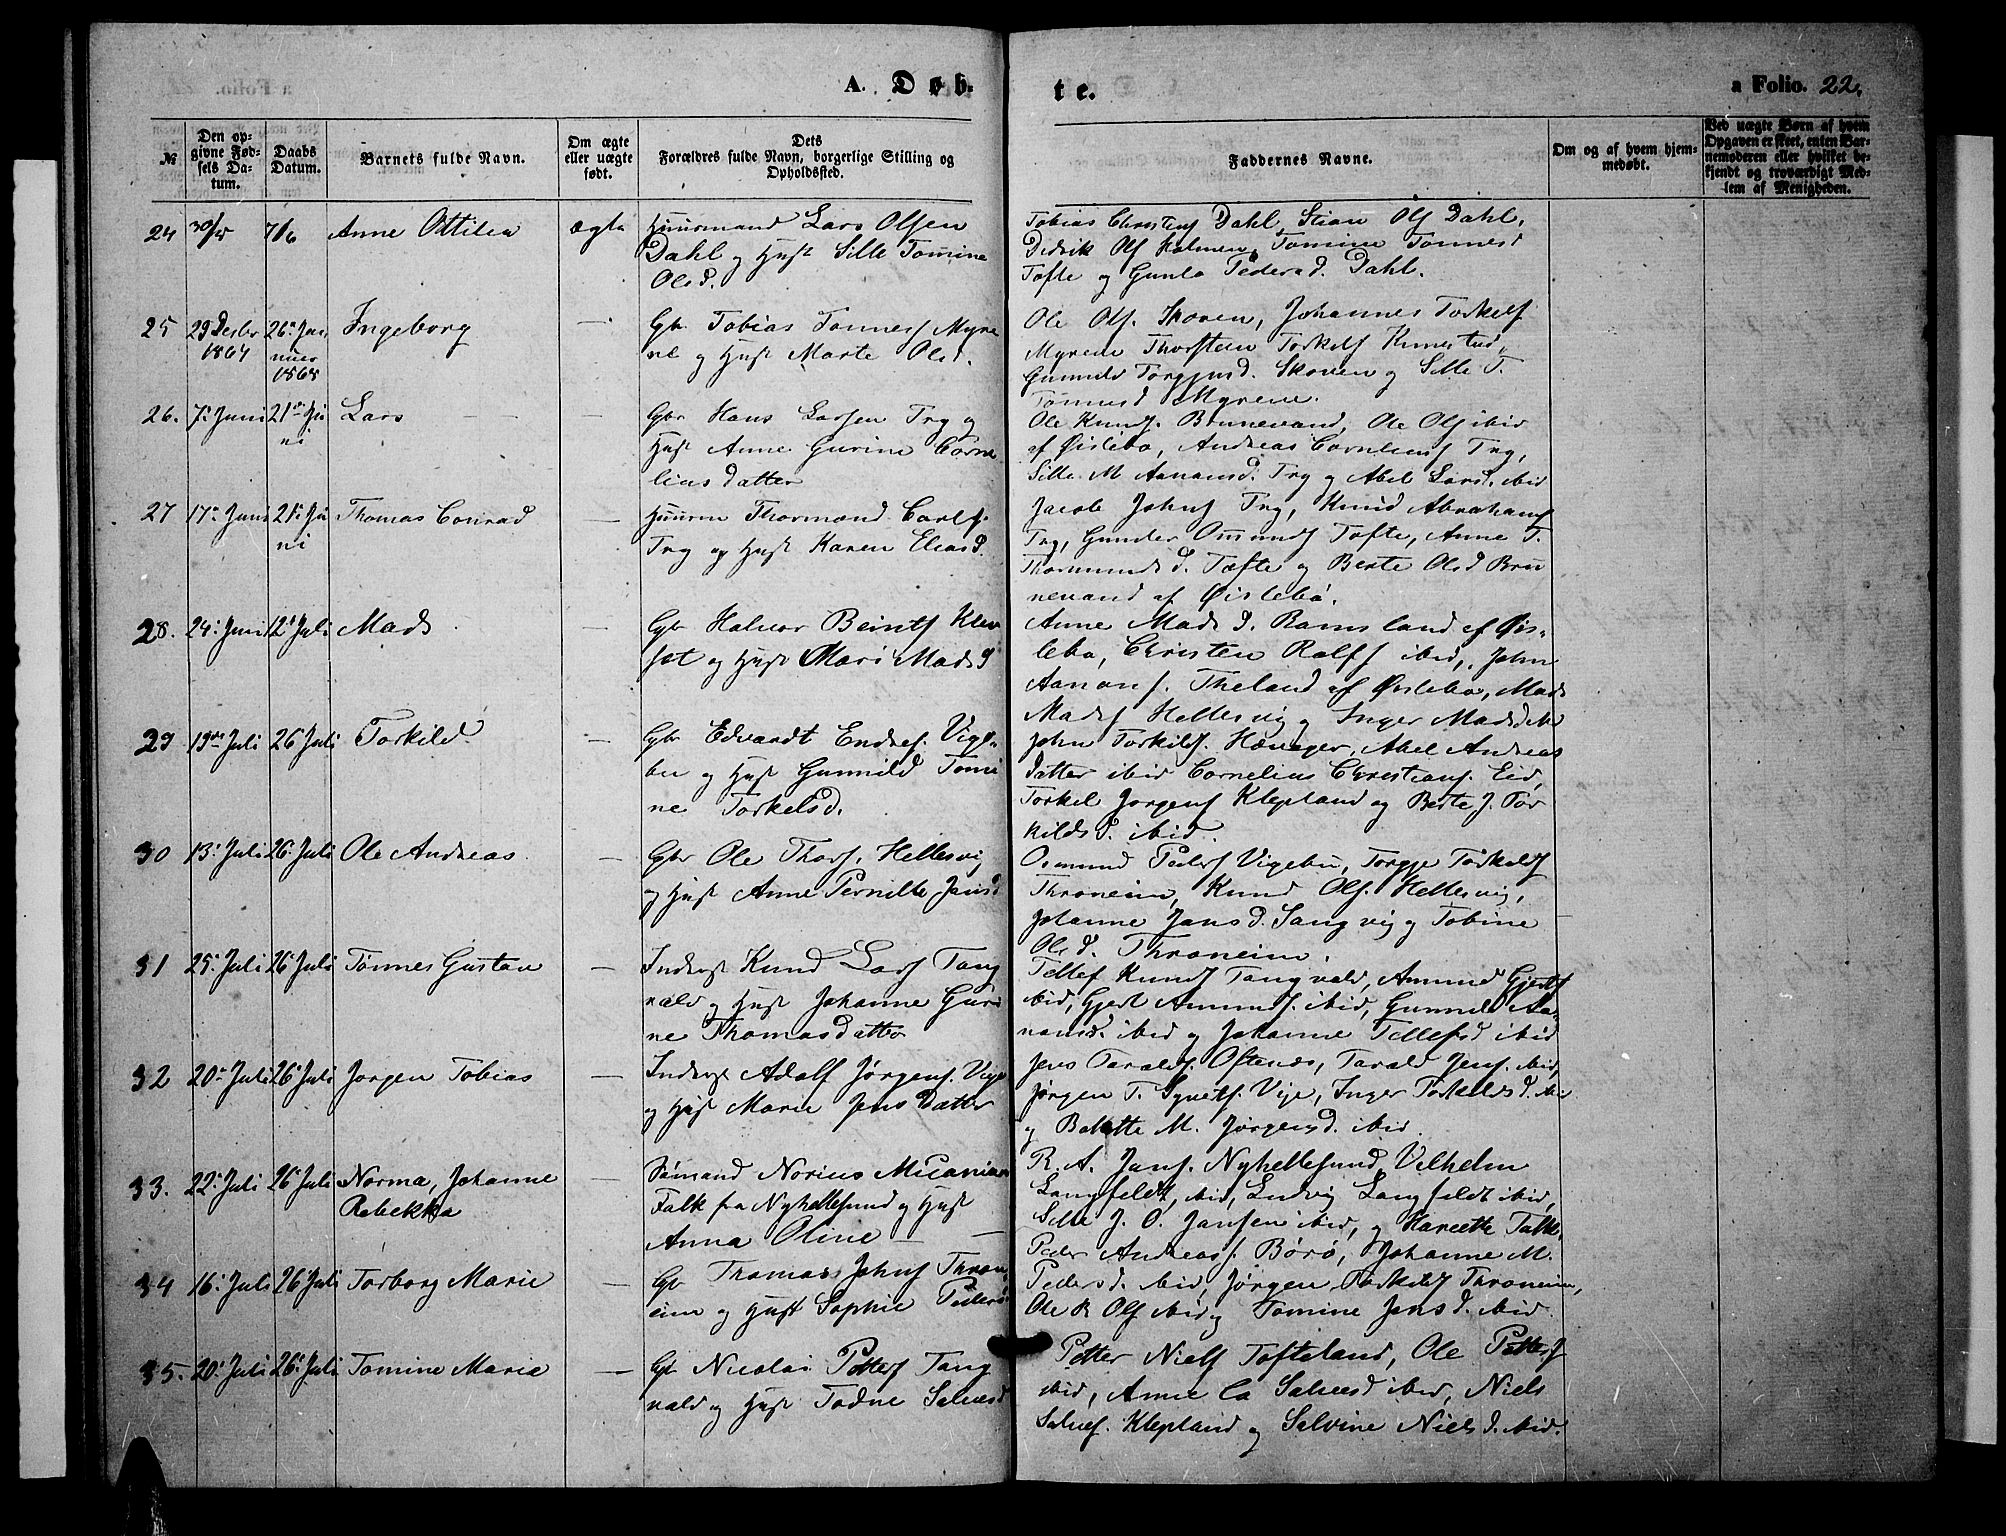 A. Døb-
te.
a Folio. 22.
№
Den op-
givne Fød-
sels Da-
tum.
Daabs
Datum.
Barnets fulde Navn.
Om ægte
eller uægte
født.
Dets
Forældres fulde Navn, borgerlige Stilling og
Opholdssted.
Faddernes Navne.
Om og af hvem hjem-
medøbt.
Ved uægte Børn af hvem
Opgaven er skeet, enten Bar-
nemoderen eller hvilket be-
kjendt og troværdigt Med-
lem af Menigheden.
24 30/5 7/6 Anne Ottilea ægte Huusmand Lars Olsen
Dahl og Hust Sille Tomine
Olsd.
Tobias Christens Dahl, Stian Ols Dahl,
Didrik Ols Holmen, Tomine Tønnesd
Tofte og Gunla Pedersd. Dahl.
25 29 Desbr 26 Jan Ingeborg — Gbr Tobias Tønnesf Myre
1864 nuar ne og Hust Marte Olsd.
1868
Ole Olf. Skoven, Johannes Torkelf
Myrene Thorsteen Torkelf Kunestad,
Gunnild Torgjusd. Skoven og Sille T.
Tønnesd Myrene.
26. 7. Juni 21 Ju Lars — — Gbr Hans Larsen Try og
ni Hust Anne Gurine Corne
liusdatter
Ole Knuds. Brunevand, Ole Ols ibid
af Øislebø, Andreas Cornliusf Try,
Sille M Aanansd. Try og Abel Larsd. ibid
27 17. Juni 21. Ju Thomas Conrad — Huusm Thormand Carlf.
ni Try og Hust Karen Eliasd.
Jacob Johnf Try, Knud Abrahamf
Try, Gunder Omundf Tofte, Anne T.
Thormundsd. Tofte og Berte Olsd Bru
nevand af Øislebø.
28. 24. Juni 12. Juli Mads — Gbr Halvor Beintf Klev
set og Hust Mari Madsd
Anne Madsd. Ramsland af Øis-
lebø, Christen Rolff ibid, John
Aananf. Theland af Øislebø, Mads
Madsf Hellesvig og Inger Madsd ibid
29 19de Juli 26 Juli Torkild — Gbr Edvardt Endref. Vige-
bu og Hust Gunnild Tomi
ne Torkelsd.
John Torkildf. Høneger, Abel Andreas
datter ibid Cornelius Christianf. Eid,
Torkel Jørgenf Klepland og Berte J. Tor
kildsd. ibid.
30 13. Juli 26. Juli Ole Andreas — Gbr Ole Thorf. Hellesvig
og Hust Anne Pernille Jansd
Osmund Peders Vigebu, Torgje Torkelf
Throneim, Knud Olf. Hellesvig,
Johanne Jansd. Sangvig og Tobine
Olsd. Throneim.
31 25. Juli 26 Juli Tønnes Gustav — Inderst Knud Larf Tang
vald og Hust Johanne Guri
ne Thomasdatter
Tellef Knudf Tangvald, Amund Gjertf
ibid, Gjert Amundf. ibid, Gunnild Aa-
nansd. ibid og Johanne Tellefsd ibid
32 20. Juli 26 Juli Jørgen Tobias — Inderst Adolf Jørgenf. Vige
og Hust Marie Jensdatter
Jens Taraldf. Oftenes, Tarald Jenf. ibid,
Jørgen T. Syvertf. Vige, Inger Torkildsd. ibid
og Bolette M. Jørgensd. ibid.
33. 22. Juli 26 Juli Norma, Johanne — Sømand Norius Micanian
Rebekka Falk fra Nyhellesund og Hust
Anna Oline — —
R. A. Janf. Nyhellesund, Vilhelm
Langfeldt, ibid, Ludvig Langfeldt ibid,
Sille J. O. Jansen ibid, og Hanette Falk.
34 16. Juli 26 Juli Torborg Marie — Gb Thomas Johnf Thron
eim og Hust Sophie Peders
Peder Andreasf. Børø, Johanne M.
Pedersd. ibid, Jørgen Torkildf Throneim,
Ole R Olf ibid og Tomine Jensd. ibid
35. 20. Juli 26. Juli Tomine Marie — Gb Nicolai Petterf Tang
vald og Hust Todne Salvesd
Petter Nielf Tofteland, Ole Petterf
ibid, Anne Ca Salvesd ibid, Niels
Salvef. Klepland og Salvine Nielsd. ibid.